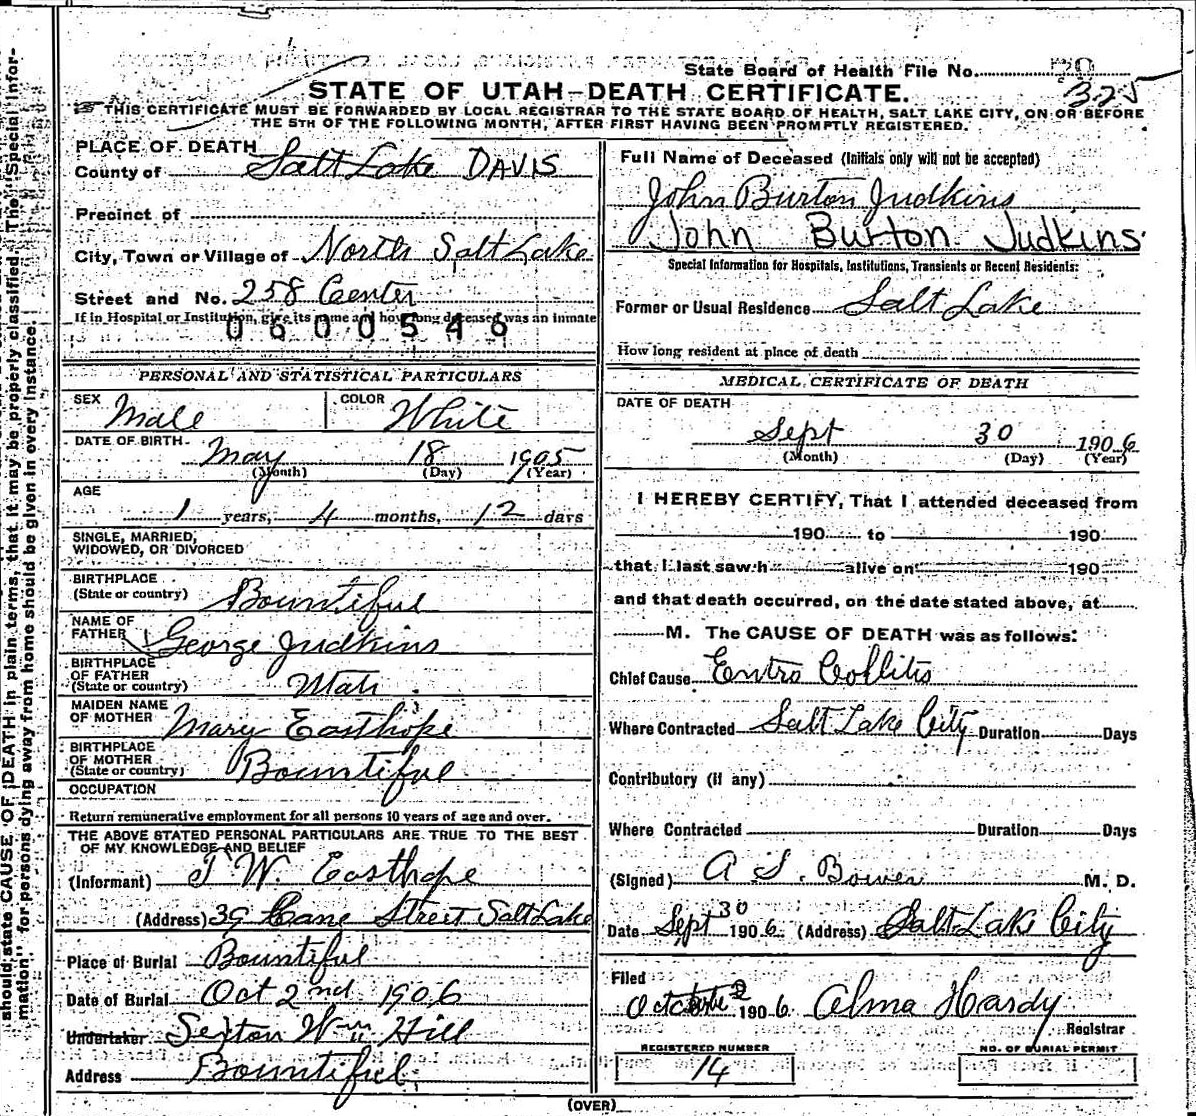 State Board of Health File No.
325
STATE OF UTAH—DEATH CERTIFICATE.
THIS CERTIFICATE MUST BE FORWARDED BY LOCAL REGISTRAR TO THE STATE BOARD OF HEALTH, SALT LAKE CITY, ON OR BEFORE
THE 5TH OF THE FOLLOWING MONTH, AFTER FIRST HAVING BEEN PROMPTLY REGISTERED.
PLACE OF DEATH
County of Salt Lake DAVIS
Precinct of
City, Town or Village of North Salt Lake
Street and No. 258 Center
If in Hospital or Institution, give its name and how long deceased was an inmate
0600546
PERSONAL AND STATISTICAL PARTICULARS
SEX Male COLOR White
DATE OF BIRTH May 18 1905
(Month) (Day) (Year)
AGE
1 years, 4 months, 12 days
SINGLE, MARRIED,
WIDOWED, OR DIVORCED
BIRTHPLACE
(State or country) Bountiful
NAME OF
FATHER George Judkins
BIRTHPLACE
OF FATHER
(State or country) Utah
MAIDEN NAME
OF MOTHER Mary Easthope
BIRTHPLACE
OF MOTHER
(State or country) Bountiful
OCCUPATION
Return remunerative employment for all persons 10 years of age and over.
THE ABOVE STATED PERSONAL PARTICULARS ARE TRUE TO THE BEST
OF MY KNOWLEDGE AND BELIEF
(Informant) J W. Easthope
(Address) 39 Cane Street Salt Lake
Place of Burial Bountiful
Date of Burial Oct 2nd 1906
Undertaker Sexton Wm Hill
Address Bountiful
Full Name of Deceased (Initials only will not be accepted)
John Burton Judkins
John Burton Judkins
Special Information for Hospitals, Institutions, Transients or Recent Residents:
Former or Usual Residence Salt Lake
How long resident at place of death
MEDICAL CERTIFICATE OF DEATH
DATE OF DEATH
Sept 30 1906
(Month) (Day) (Year)
I HEREBY CERTIFY, That I attended deceased from
190 to 190
that I last saw h alive on 190
and that death occurred, on the date stated above, at
M. The CAUSE OF DEATH was as follows:
Chief Cause Entro Collitis
Where Contracted Salt Lake City Duration Days
Contributory (if any)
Where Contracted Duration Days
(Signed) A S. Bower M. D.
Date Sept 30 1906 (Address) Salt Lake City
Filed
October 2 1906 Alma Hardy
Registrar
REGISTERED NUMBER
14
NO. OF BURIAL PERMIT
(OVER)
should state CAUSE OF DEATH in plain terms, that it may be properly classified. The "Special Infor-
mation" for persons dying away from home should be given in every instance.